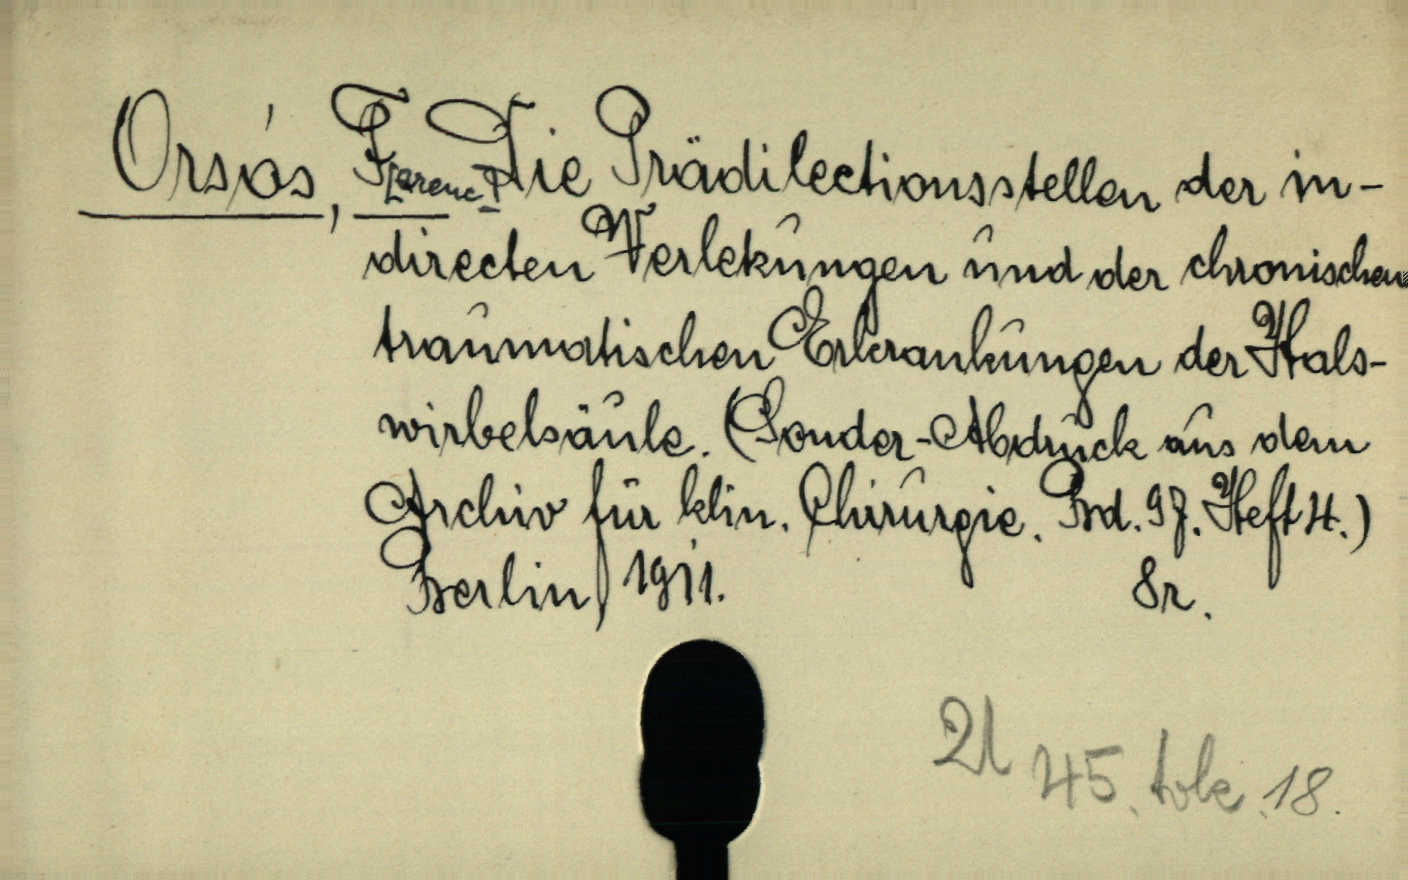 Orsós, F. Die Prädilectionsstellen der in-
Ferenc
directen Verletzungen und der chronischen
traumatischen Erkrankungen der Hals-
wirbelsäule. (Sonder-Abdruck aus dem
Archiv für klin. Chirurgie. Bd. 97. Heft 4.)
Berlin, 1911. 8r.
45. tok. 18.